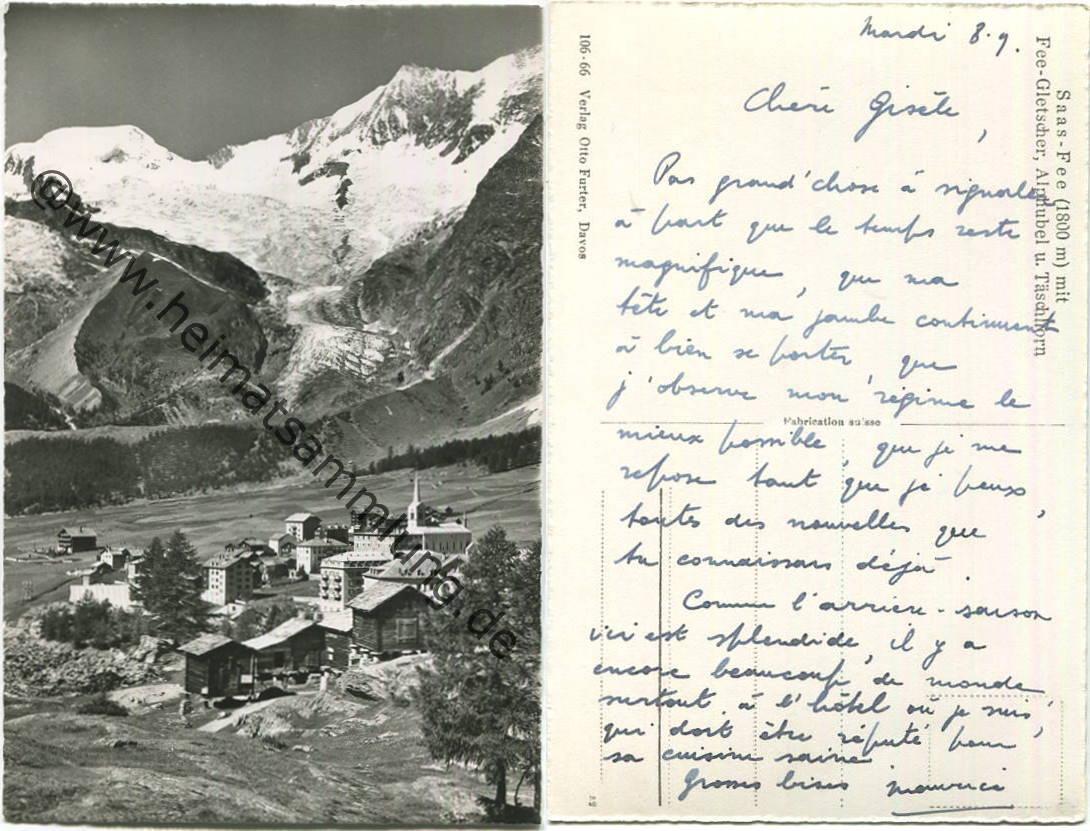 ©www.heimatsammlung.de
106-66 Verlag Otto Furter, Davos
Saas-Fee (1800 m) mit
Fee-Gletscher, Alphubel u. Täschhorn
Fabrication suisse
Mardi 8.9.
Chère Gisèle,
Pas grand'chose à signaler
à part que le temps reste
magnifique, que ma
tête et ma jambe continuent
à bien se porter, que
j'observe mon régime le
mieux possible, que je me
repose tant que je peux,
toutes des nouvelles que
tu connaissais déjà.
Comme l'arrière-saison
ici est splendide, il y a
encore beaucoup de monde
surtout à l'hôtel où je suis,
qui doit être réputé pour
sa cuisine saine
Grosses bises Maurice